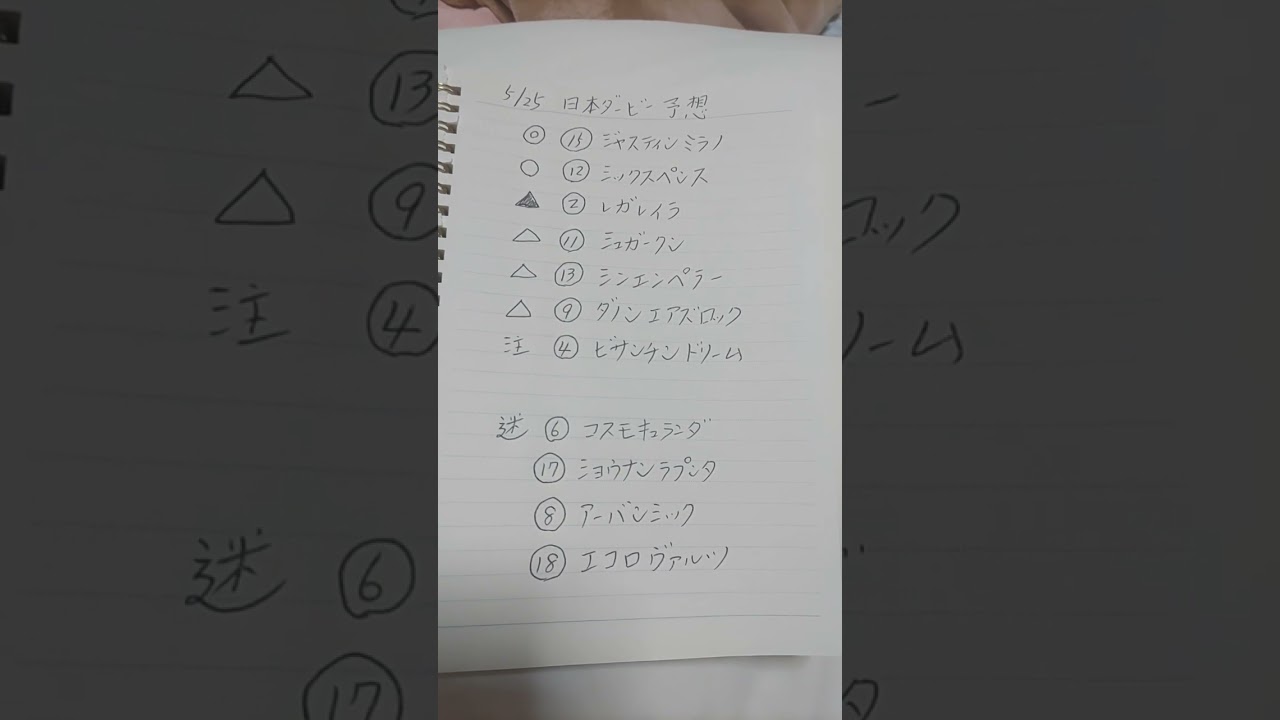 5/25 日本ダービー予想
◎ ⑮ ジャスティンミラノ
○ ⑫ シックスペンス
▲ ② レガレイラ
△ ⑪ シュガークン
△ ⑬ シンエンペラー
△ ⑨ ダノンエアズロック
注 ④ ビザンチンドリーム
迷 ⑥ コスモキュランダ
⑰ ショウナンラプンタ
⑧ アーバンシック
⑱ エコロヴァルツ